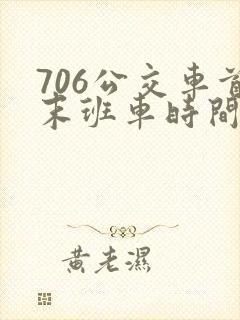 706公交車首
末班車時間
黃老濕